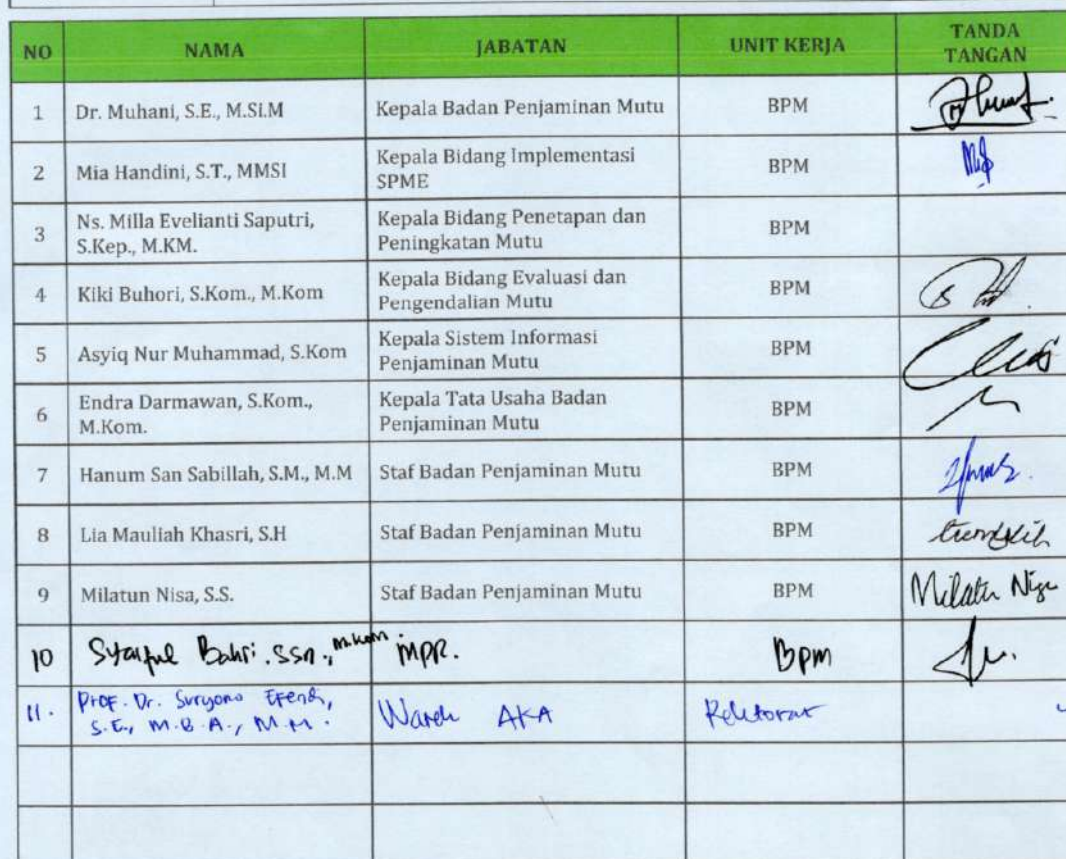 NO NAMA JABATAN UNIT KERJA TANDA TANGAN
1 Dr. Muhani, S.E., M.Si.M Kepala Badan Penjaminan Mutu BPM
2 Mia Handini, S.T., MMSI Kepala Bidang Implementasi SPME BPM
3 Ns. Milla Evelianti Saputri, S.Kep., M.KM. Kepala Bidang Penetapan dan Peningkatan Mutu BPM
4 Kiki Buhori, S.Kom., M.Kom Kepala Bidang Evaluasi dan Pengendalian Mutu BPM
5 Asyiq Nur Muhammad, S.Kom Kepala Sistem Informasi Penjaminan Mutu BPM
6 Endra Darmawan, S.Kom., M.Kom. Kepala Tata Usaha Badan Penjaminan Mutu BPM
7 Hanum San Sabillah, S.M., M.M Staf Badan Penjaminan Mutu BPM
8 Lia Mauliah Khasri, S.H Staf Badan Penjaminan Mutu BPM
9 Milatun Nisa, S.S. Staf Badan Penjaminan Mutu BPM Milatun Nisa
10 Syaiful Bahri. SSn., M.Kom. MPR. BPM
11. Prof. Dr. Suryono Efendi, S.E., M.B.A., M.M. Warek AKA Rektorat